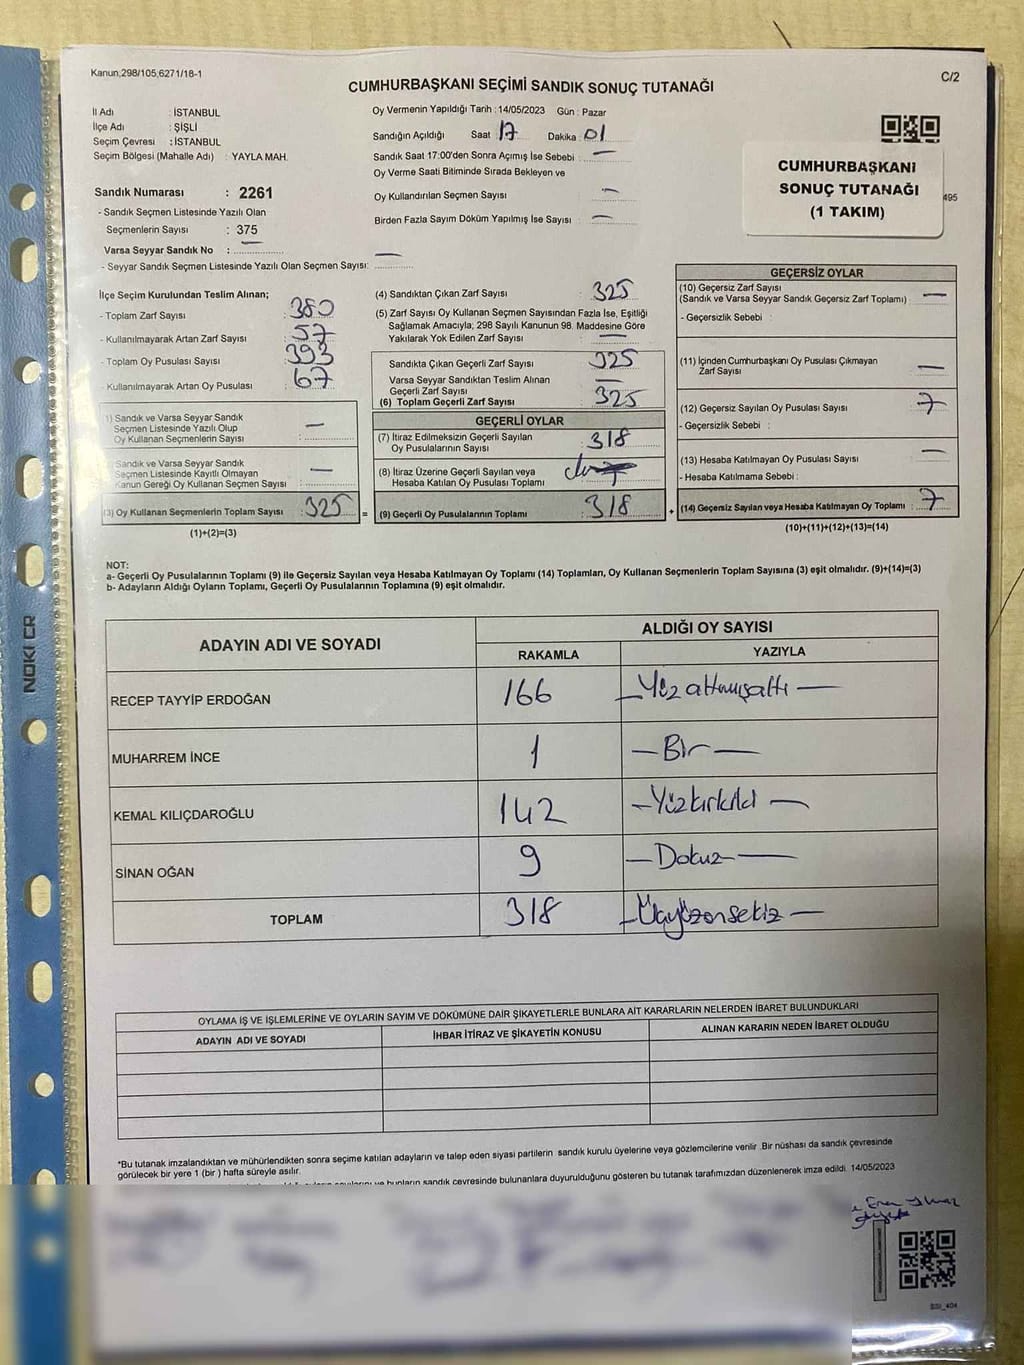 Kanun;298/105,6271/18-1
C/2
CUMHURBAŞKANI SEÇİMİ SANDIK SONUÇ TUTANAĞI
İl Adı : İSTANBUL
İlçe Adı : ŞİŞLİ
Seçim Çevresi : İSTANBUL
Seçim Bölgesi (Mahalle Adı) : YAYLA MAH.
Sandık Numarası : 2261
- Sandık Seçmen Listesinde Yazılı Olan
Seçmenlerin Sayısı : 375
Varsa Seyyar Sandık No : —
- Seyyar Sandık Seçmen Listesinde Yazılı Olan Seçmen Sayısı: —
Oy Vermenin Yapıldığı Tarih : 14/05/2023 Gün : Pazar
Sandığın Açıldığı Saat 17 Dakika 01
Sandık Saat 17:00'den Sonra Açımış İse Sebebi : —
Oy Verme Saati Bitiminde Sırada Bekleyen ve
Oy Kullandırılan Seçmen Sayısı : —
Birden Fazla Sayım Döküm Yapılmış İse Sayısı : —
CUMHURBAŞKANI
SONUÇ TUTANAĞI
(1 TAKIM)
495
İlçe Seçim Kurulundan Teslim Alınan;
- Toplam Zarf Sayısı : 380
- Kullanılmayarak Artan Zarf Sayısı : 57
- Toplam Oy Pusulası Sayısı : 393
- Kullanılmayarak Artan Oy Pusulası : 67
1) Sandık ve Varsa Seyyar Sandık
Seçmen Listesinde Yazılı Olup
Oy Kullanan Seçmenlerin Sayısı : —
Sandık ve Varsa Seyyar Sandık
Seçmen Listesinde Kayıtlı Olmayan
Kanun Gereği Oy Kullanan Seçmen Sayısı : —
(3) Oy Kullanan Seçmenlerin Toplam Sayısı : 325 =
(1)+(2)=(3)
(4) Sandıktan Çıkan Zarf Sayısı : 325
(5) Zarf Sayısı Oy Kullanan Seçmen Sayısından Fazla İse, Eşitliği
Sağlamak Amacıyla; 298 Sayılı Kanunun 98. Maddesine Göre
Yakılarak Yok Edilen Zarf Sayısı : —
Sandıkta Çıkan Geçerli Zarf Sayısı : 325
Varsa Seyyar Sandıktan Teslim Alınan
Geçerli Zarf Sayısı : —
(6) Toplam Geçerli Zarf Sayısı : 325
GEÇERLİ OYLAR
(7) İtiraz Edilmeksizin Geçerli Sayılan
Oy Pusulalarının Sayısı : 318
(8) İtiraz Üzerine Geçerli Sayılan veya
Hesaba Katılan Oy Pusulası Toplamı
(9) Geçerli Oy Pusulalarının Toplamı : 318 +
GEÇERSİZ OYLAR
(10) Geçersiz Zarf Sayısı
(Sandık ve Varsa Seyyar Sandık Geçersiz Zarf Toplamı) : —
- Geçersizlik Sebebi :
(11) İçinden Cumhurbaşkanı Oy Pusulası Çıkmayan
Zarf Sayısı : —
(12) Geçersiz Sayılan Oy Pusulası Sayısı : 7
- Geçersizlik Sebebi :
(13) Hesaba Katılmayan Oy Pusulası Sayısı : —
- Hesaba Katılmama Sebebi :
(14) Geçersiz Sayılan veya Hesaba Katılmayan Oy Toplamı : 7
(10)+(11)+(12)+(13)=(14)
NOT:
a- Geçerli Oy Pusulalarının Toplamı (9) ile Geçersiz Sayılan veya Hesaba Katılmayan Oy Toplamı (14) Toplamları, Oy Kullanan Seçmenlerin Toplam Sayısına (3) eşit olmalıdır. (9)+(14)=(3)
b- Adayların Aldığı Oyların Toplamı, Geçerli Oy Pusulalarının Toplamına (9) eşit olmalıdır.
ADAYIN ADI VE SOYADI
ALDIĞI OY SAYISI
RAKAMLA YAZIYLA
RECEP TAYYİP ERDOĞAN 166 — Yüzaltmışaltı —
MUHARREM İNCE 1 — Bir —
KEMAL KILIÇDAROĞLU 142 — Yüzkırkiki —
SİNAN OĞAN 9 — Dokuz —
TOPLAM 318 — Üçyüzonsekiz —
OYLAMA İŞ VE İŞLEMLERİNE VE OYLARIN SAYIM VE DÖKÜMÜNE DAİR ŞİKAYETLERLE BUNLARA AİT KARARLARIN NELERDEN İBARET BULUNDUKLARI
ADAYIN ADI VE SOYADI İHBAR İTİRAZ VE ŞİKAYETİN KONUSU ALINAN KARARIN NEDEN İBARET OLDUĞU
*Bu tutanak imzalandıktan ve mühürlendikten sonra seçime katılan adayların ve talep eden siyasi partilerin sandık kurulu üyelerine veya gözlemcilerine verilir .Bir nüshası da sandık çevresinde
görülecek bir yere 1 (bir ) hafta süreyle asılır.
ve bunların sandık çevresinde bulunanlara duyurulduğunu gösteren bu tutanak tarafımızdan düzenlenerek imza edildi. 14/05/2023
NOKI CR